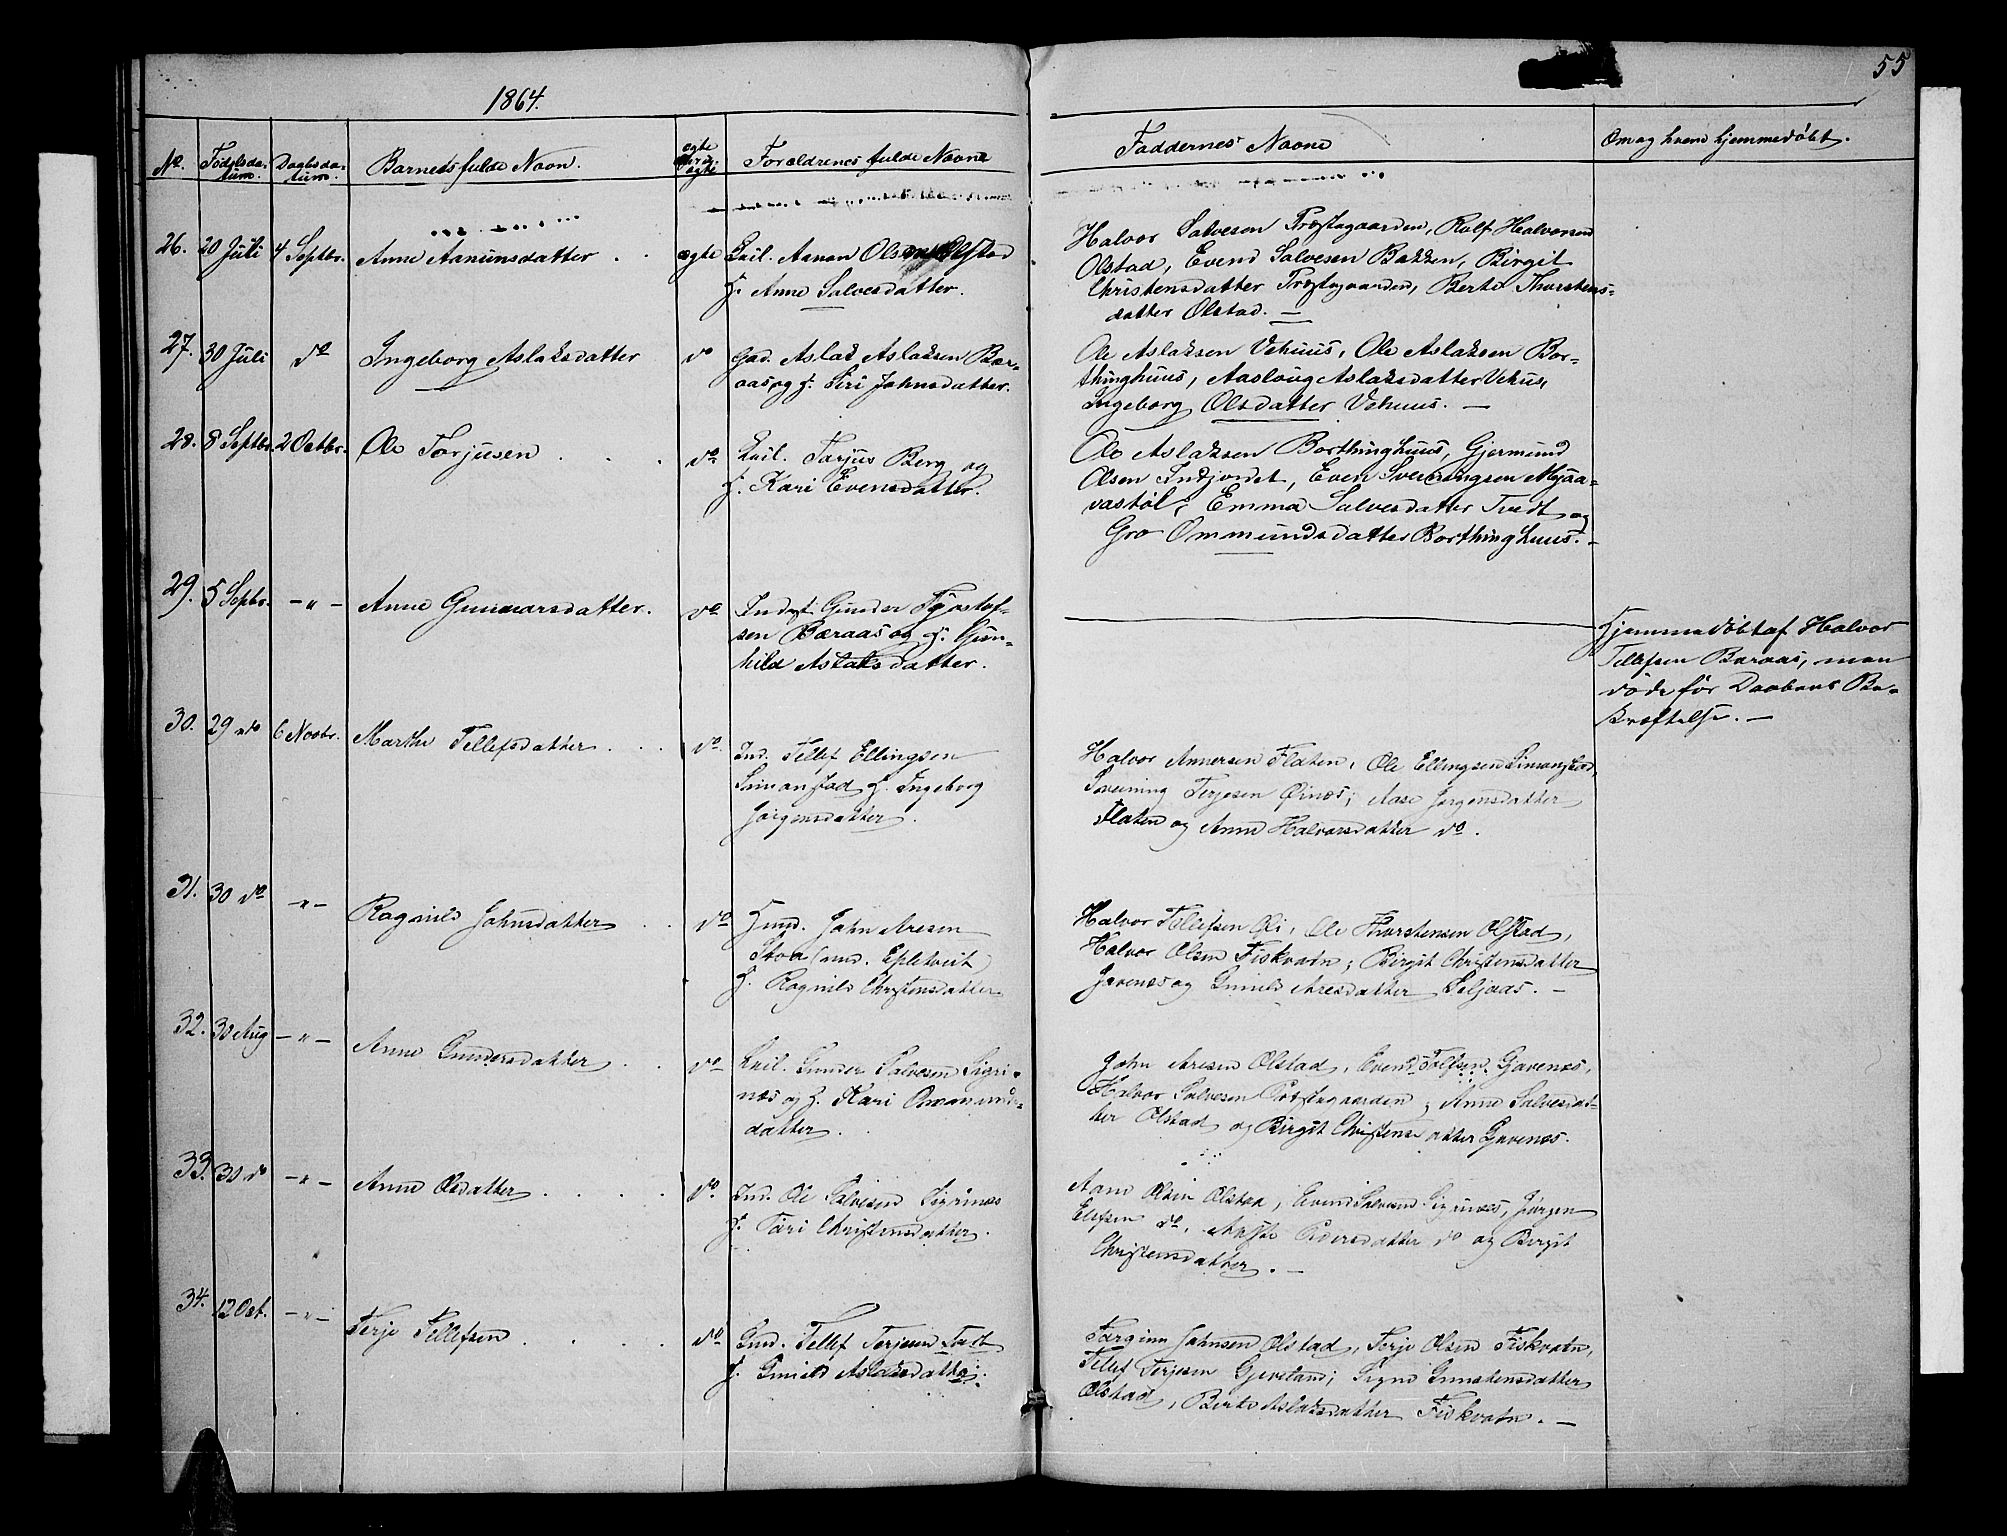 55
1864.
No. Fødselsdatum. Daabsdatum. Barnets fulde Navn. ægte uægte Forældrenes fulde Navne Faddernes Navne Om og hvem hjemmedøbt.
26. 20 Juli 4 Septbr. Anne Aanunsdatter . . ægte Leil. Aanon Olsen Olstad
H. Anne Salvesdatter.
Halvor Salvesen Præstegaarden, Rolf Halvorsen
Olstad, Evend Salvesen Bakken, Birgit
Christensdatter Præstegaarden, Berte Thorstens-
datter Olstad. —
27. 30 Juli do Ingeborg Aslaksdatter do Gad. Aslak Aslaksen Bær-
aas og H. Siri Johnsdatter.
Ole Aslaksen Vehuus, Ole Aslaksen Bor-
thinghuus, Aaslaug Aslaksdatter Vehus,
Ingeborg Olsdatter Vehuus. —
28. 8 Septbr. 2 Octbr. Ole Torjusen . . . do Leil. Torjus Berg og
H. Kari Evensdatter.
Ole Aslaksen Borthinghuus, Gjermund
Olsen Indjordet, Even Sveinungsen Mjaa-
vastøl, Emma Salvesdatter Tvedt og
Gro Ommundsdatter Borthinghuus. -
29. 5 Septbr. —"— Anne Gunnarsdatter. do Inds. Gunder Tjøstof-
sen Bæraas og H. Gun-
hild Aslaksdatter.
Hjemmedøbt af Halvor
Tellefsen Baraas, men
døde før Daabens Be-
kræftelse. —
30. 29 do 6 Novbr. Marthe Tellefsdatter . . . do Ind. Tellef Ellingsen
Simonstad H. Ingeborg
Jørgensdatter.
Halvor Annersen Flaten, Ole Ellingsen Simonstad,
Sveinung Terjesen Øinæs; Aase Jørgensdatter
Flaten og Anne Halvorsdatter do.
31. 30 do —"— Ragnild Johnsdatter . . do Huusm. John Aresen
Stoa Epletveit
H. Ragnild Christensdatter
Halvor Tellefsen Oli, Ole Thorstensen Olstad,
Halvor Olsen Fiskvatn; Birgit Christensdatter
Gavenæs og Gunild Aresdatter Seljaas. —
32. 30 Aug —"— Anne Gundersdatter . . do Leil. Gunder Salvesen Sigri-
næs og H. Kari Ommunds-
datter.
John Aresen Olstad, Evend Tolfsen Gavenæs,
Halvor Salvesen Præstegaarden; Anne Salvesdat-
ter Olstad og Birgit Christensdatter Gavenæs.
33. 30 do —"— Anne Olsdatter . . . . do. Ind. Ole Salvesen Sigrinæs
H. Tari Christensdatter.
Aanon Olsen Olstad, Evend Salvesen Sigrinæs, Jørgen
Elefsen do, Pedersdatter do og Birgit
Christensdatter. —
34. 12 Oct. —"— Terje Tellefsen . . . . do Gmd. Tellef Terjesen Tvedt
H. Gunild Aslaksdatter.
Torginn Johnsen Olstad, Terje Olsen Fiskvatn,
Tellef Terjesen Gjerstand; Signe Gunstensdatter
Olstad, Birte Aslaksdatter Fiskvatn. —